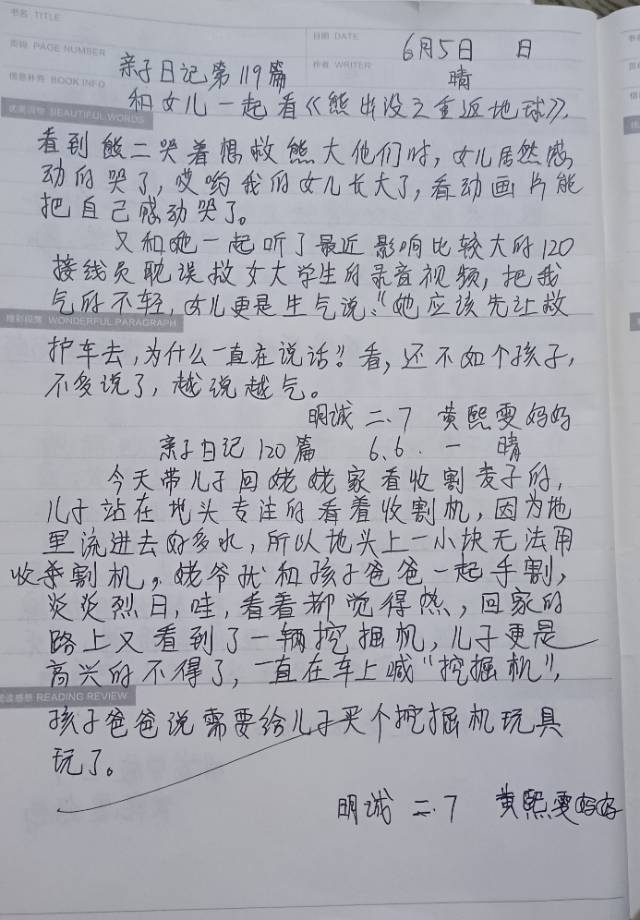 书名 TITLE
日期 DATE 6月5日 日
页码 PAGE NUMBER
作者 WRITER 晴
亲子日记第119篇
信息补充 BOOK INFO
和女儿一起看《熊出没之重返地球》,
优美词句 BEAUTIFUL WORDS
看到熊二哭着想救熊大他们时,女儿居然感
动的哭了,哎哟我的女儿长大了,看动画片能
把自己感动哭了。
又和她一起听了最近影响比较大的120
接线员耽误救女大学生的录音视频,把我
气的不轻,女儿更是生气说:“她应该先让救
精彩段落 WONDERFUL PARAGRAPH
护车去,为什么一直在说话?看,还不如个孩子,
不多说了,越说越气。
明诚 二.7 黄熙雯妈妈
亲子日记120篇 6.6. 一 晴
今天带儿子回姥姥家看收割麦子的,
儿子站在地头专注的看着收割机,因为地
里流进去好多水,所以地头上一小块无法用
收割机,姥爷和孩子爸爸一起手割,
炎炎烈日,哇,看着都觉得热,回家的
路上又看到了一辆挖掘机,儿子更是
高兴的不得了,一直在车上喊“挖掘机”,
阅读感想 READING REVIEW
孩子爸爸说需要给儿子买个挖掘机玩具
玩了。
明诚 二.7 黄熙雯妈妈